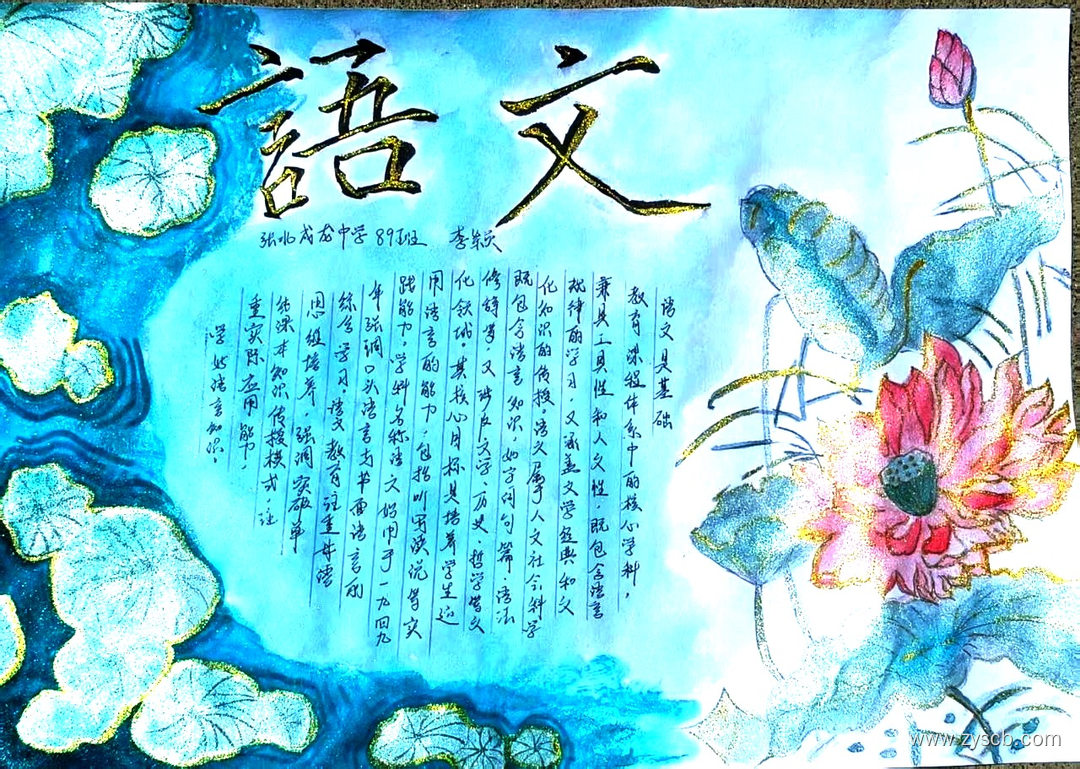 語文
张北成龙中学 89班 李
语文具基础
教育课程体系中的核心学科，
兼具工具性和人文性，既包含语言
规律的学习，又涵盖文学经典和文
化知识的传授。语文属于人文社会科学
既包含语言知识，如字词句篇、语法
修辞等，又涉及文学、历史、哲学等文
化领域。其核心目标是培养学生运
用语言的能力，包括听写读说等实
践能力。学科名称语文始用于一九四九
年强调口头语言与书面语言的
综合学习，语文教育注重母语
思维培养，强调突破单
纯课本知识传授模式，注
重实际应用能力，
学好语言知识。